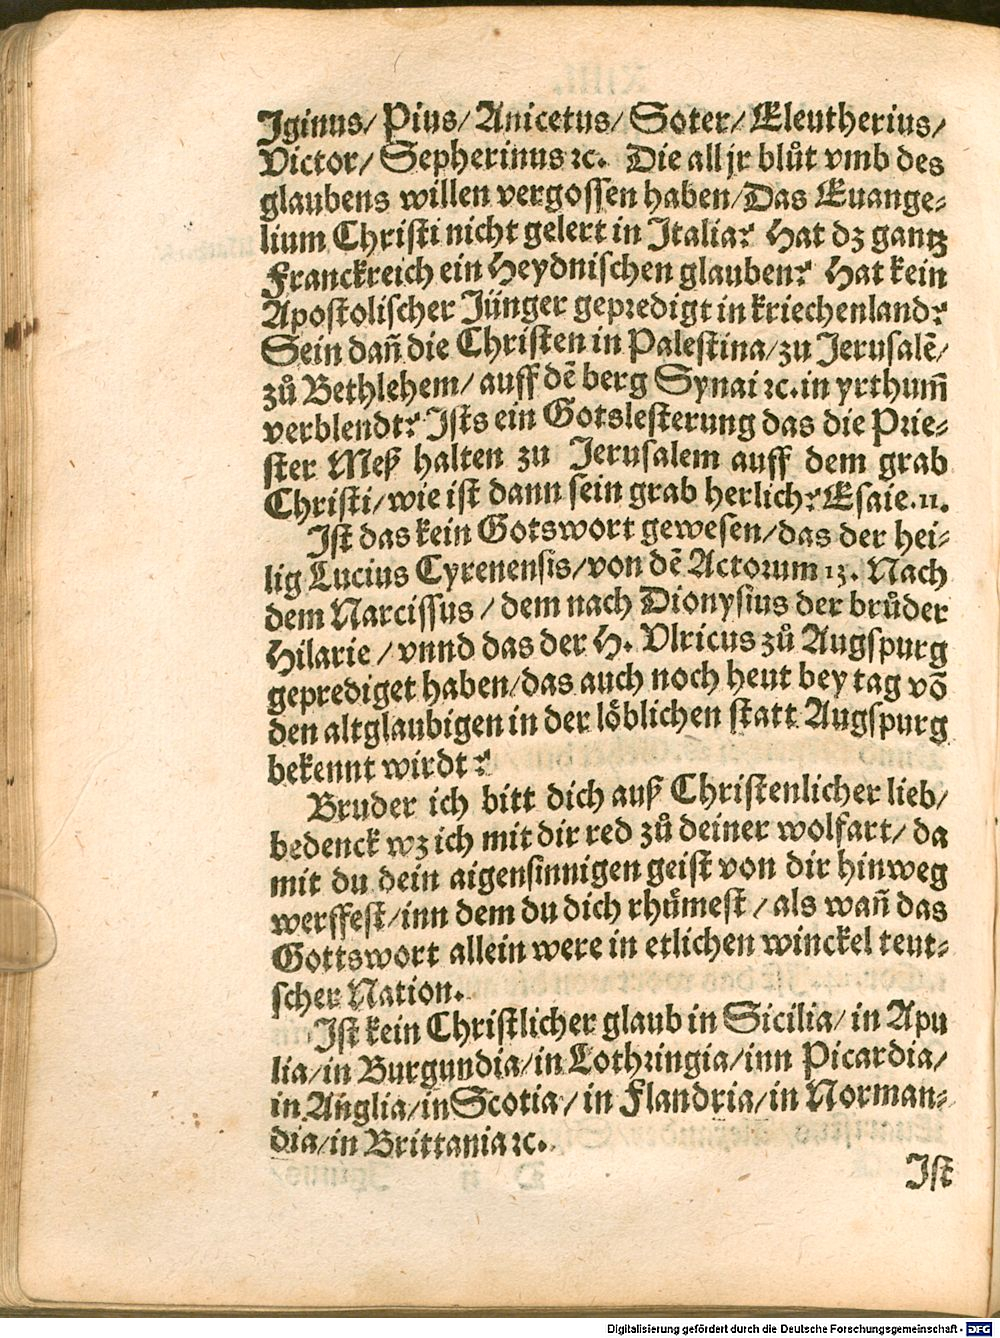 Iginus/ Pius/ Anicetus/ Soter/ Eleutherius/
Victor/ Sepherinus ꝛc. Die all jr blůt vmb des
glaubens willen vergossen haben/ Das Euange⸗
lium Christi nicht gelert in Italia? Hat dz gantz
Franckreich ein Heydnischen glauben? Hat kein
Apostolischer Jünger gepredigt in kriechenland?
Sein dañ die Christen in Palestina/ zu Jerusalē/
zů Bethlehem/ auff dē berg Synai ꝛc. in yrthum̃
verblendt? Ists ein Gotslesterung das die Prie⸗
ster Meß halten zu Jerusalem auff dem grab
Christi/ wie ist dann sein grab herlich? Esaie. 11.
Ist das kein Gotswort gewesen/ das der hei⸗
lig Lucius Cyrenensis/ von dē Actorum 13. Nach
dem Narcissus / dem nach Dionysius der brůder
Hilarie / vnnd das der H. Vlricus zů Augspurg
geprediget haben/ das auch noch heut bey tag võ
den altglaubigen in der löblichen statt Augspurg
bekennt wirdt?
Bruder ich bitt dich auß Christenlicher lieb/
bedenck wz ich mit dir red zů deiner wolfart/ da
mit du dein aigensinnigen geist von dir hinweg
werffest/ inn dem du dich rhümest / als wañ das
Gottswort allein were in etlichen winckel teut⸗
scher Nation.
Ist kein Christlicher glaub in Sicilia/ in Apu
lia/ in Burgundia/ in Lothringia/ inn Picardia/
in Anglia/ in Scotia / in Flandria/ in Norman⸗
dia/ in Brittania ꝛc.
Ist
Digitalisierung gefördert durch die Deutsche Forschungsgemeinschaft - DFG